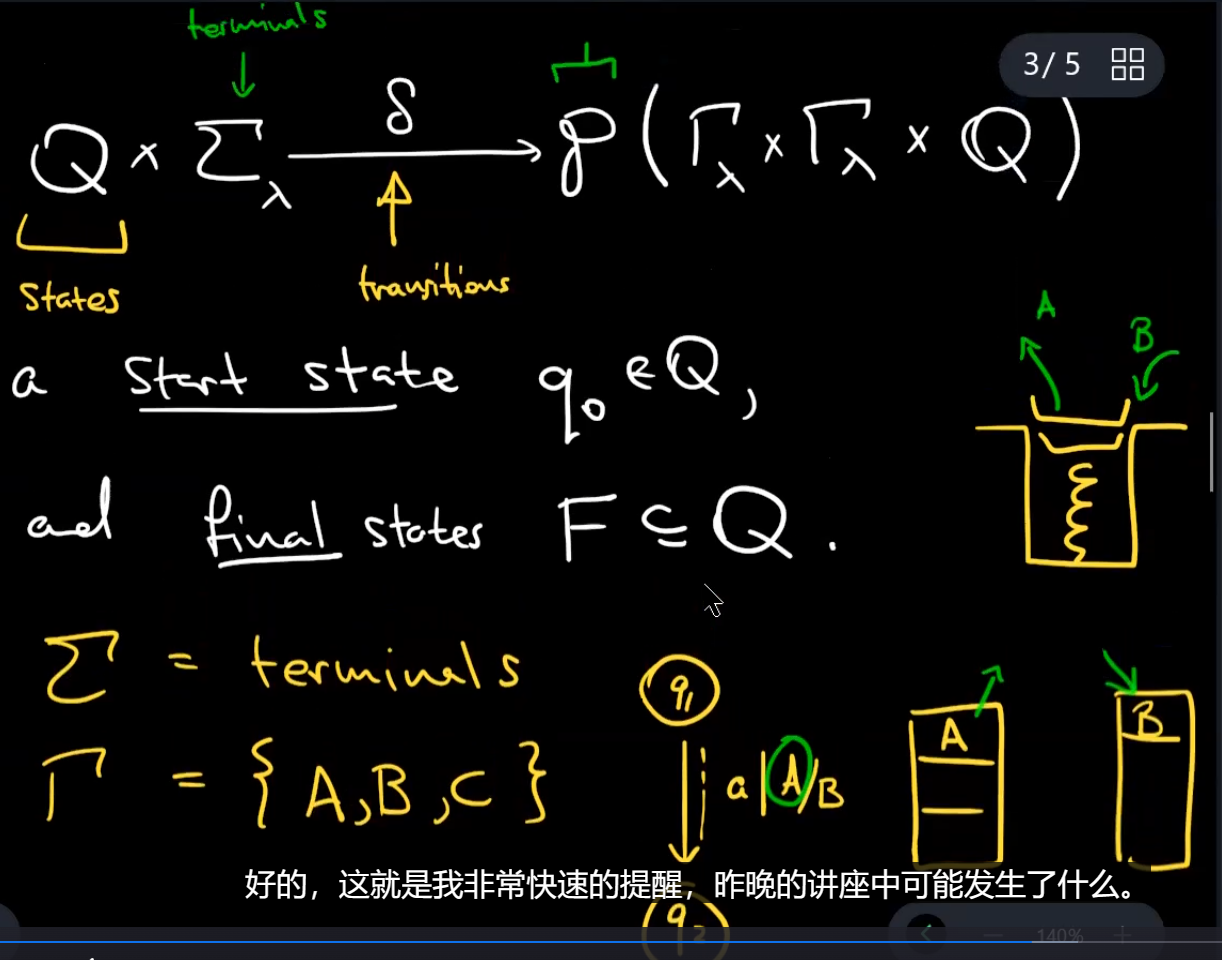 terminals
3/ 5
Q × Σ_λ δ → ℘ ( Γ_λ × Γ_λ × Q )
states
transitions
a start state q₀ ∈ Q ,
A
B
and final states F ⊆ Q .
Σ = terminals
q₁
A
B
Γ = { A, B, C }
a | A / B
好的，这就是我非常快速的提醒，昨晚的讲座中可能发生了什么。
q₂
140%